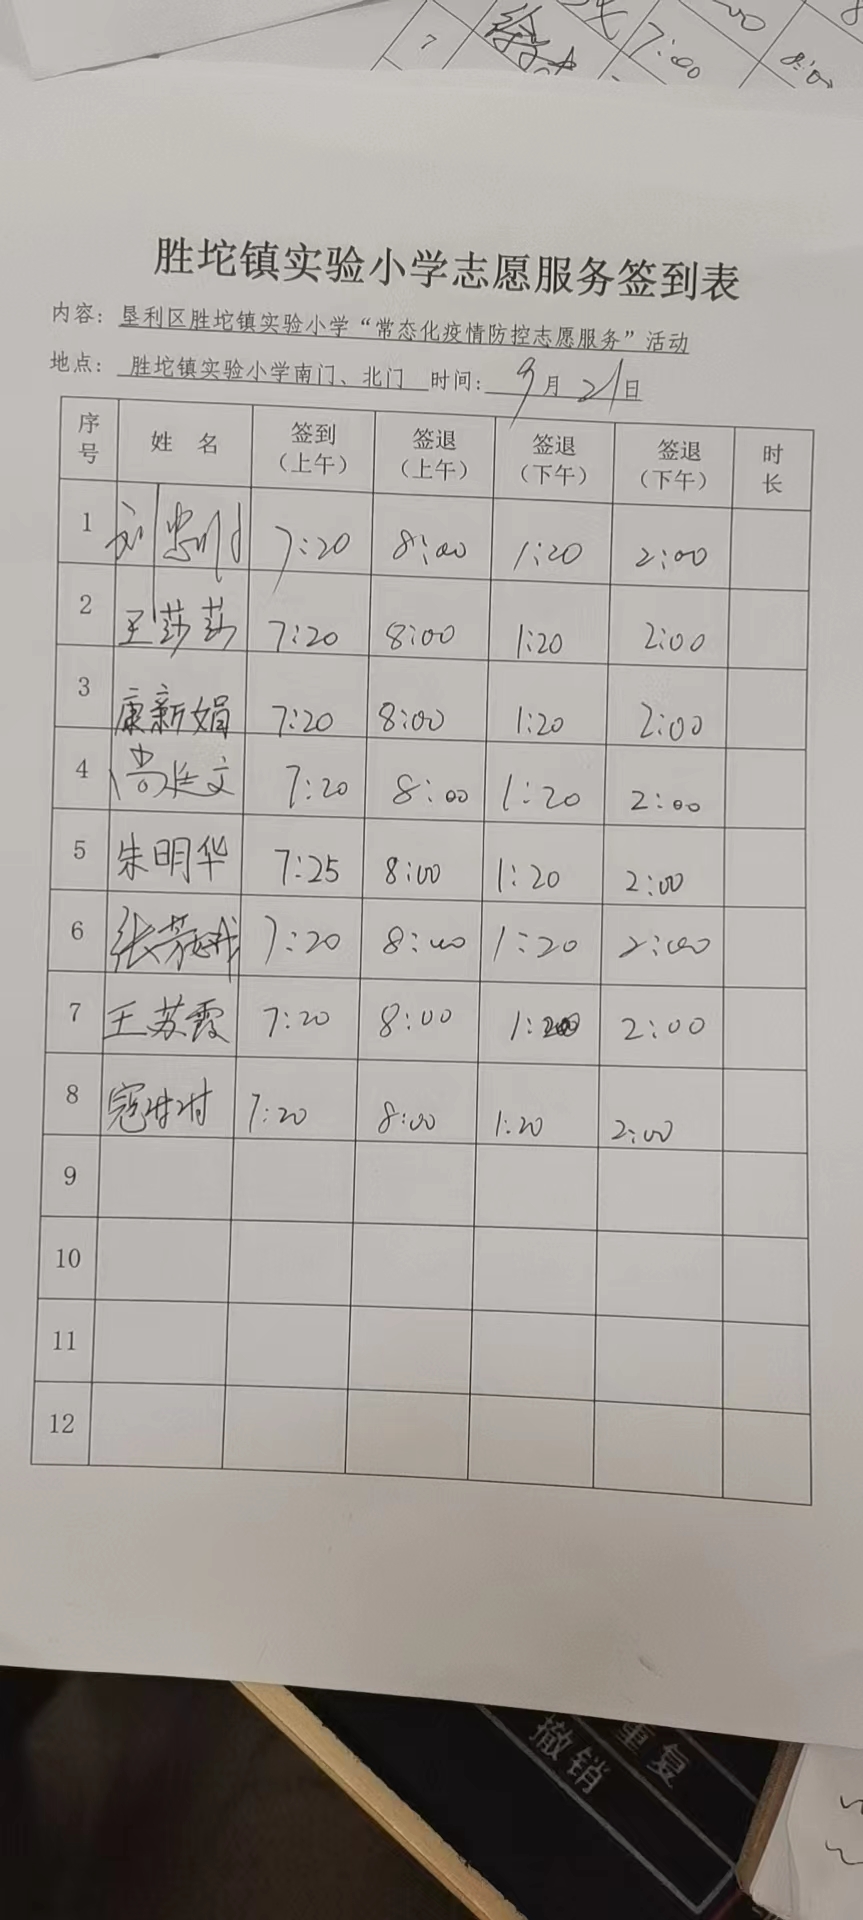 7 7:00 8:00
胜坨镇实验小学志愿服务签到表
内容: 垦利区胜坨镇实验小学“常态化疫情防控志愿服务”活动
地点: 胜坨镇实验小学南门、北门 时间: 9月21日
序号 姓 名 签到(上午) 签退(上午) 签退(下午) 签退(下午) 时长
1 刘 7:20 8:00 1:20 2:00
2 王莎莎 7:20 8:00 1:20 2:00
3 康新娟 7:20 8:00 1:20 2:00
4 尚廷文 7:20 8:00 1:20 2:00
5 朱明华 7:25 8:00 1:20 2:00
6 张芳 7:20 8:00 1:20 2:00
7 王苏霞 7:20 8:00 1:20 2:00
8 寇 7:20 8:00 1:20 2:00
9
10
11
12
重复
撤销